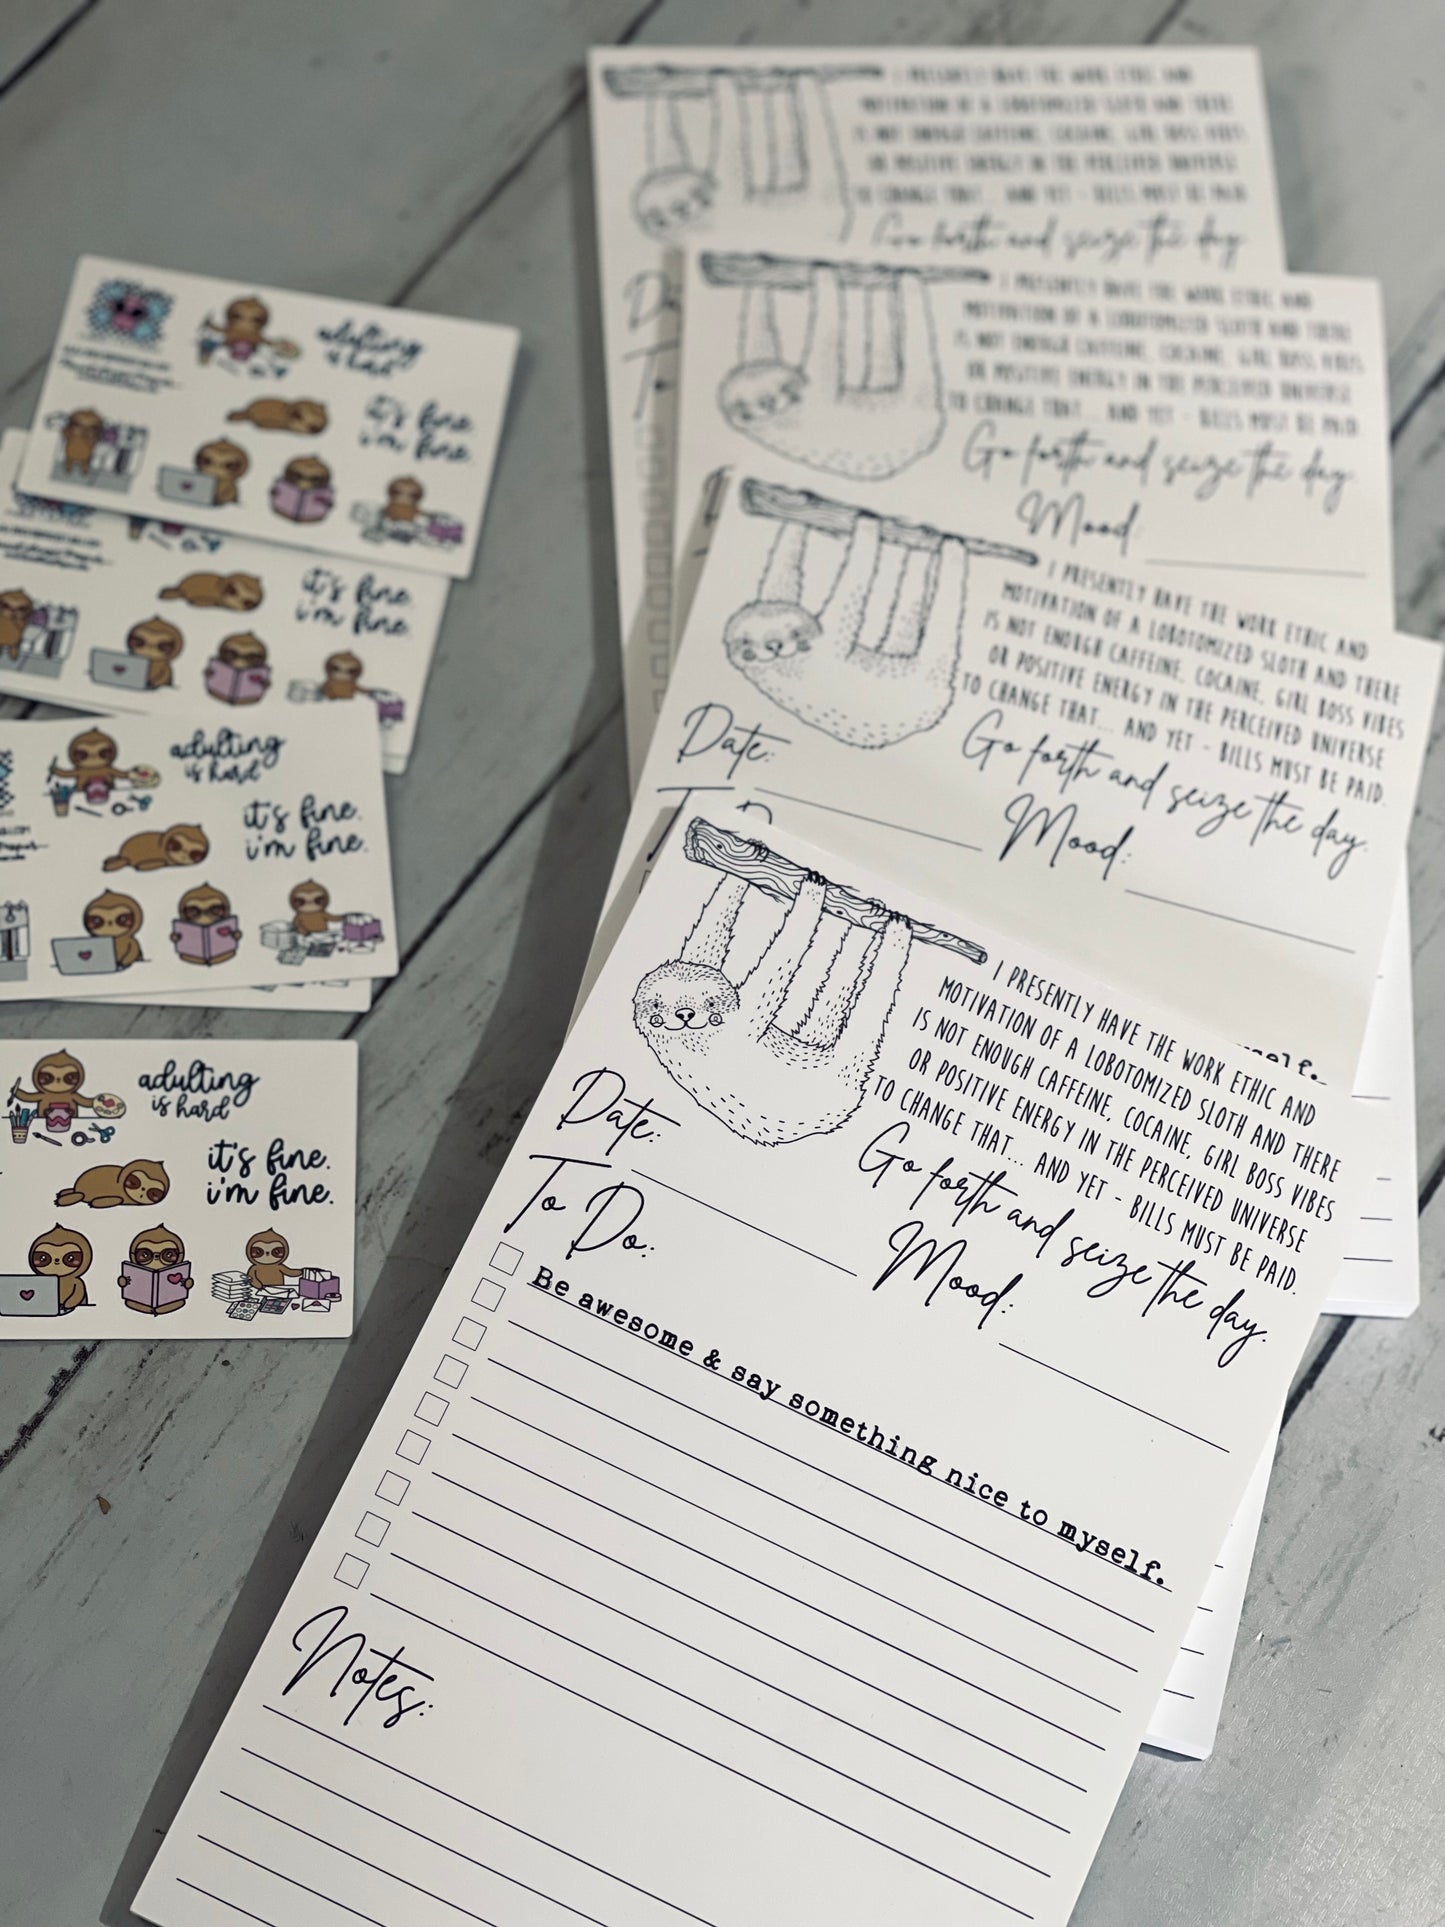 adulting
is hard
it's fine.
i'm fine.
it's fine.
i'm fine.
adulting
is hard
it's fine.
i'm fine.
adulting
is hard
it's fine.
i'm fine.
I PRESENTLY HAVE THE WORK ETHIC AND
MOTIVATION OF A LOBOTOMIZED SLOTH AND THERE
IS NOT ENOUGH CAFFEINE, COCAINE, GIRL BOSS VIBES
OR POSITIVE ENERGY IN THE PERCEIVED UNIVERSE
TO CHANGE THAT... AND YET - BILLS MUST BE PAID.
Go forth and seize the day.
I PRESENTLY HAVE THE WORK ETHIC AND
MOTIVATION OF A LOBOTOMIZED SLOTH AND THERE
IS NOT ENOUGH CAFFEINE, COCAINE, GIRL BOSS VIBES
OR POSITIVE ENERGY IN THE PERCEIVED UNIVERSE
TO CHANGE THAT... AND YET - BILLS MUST BE PAID.
Go forth and seize the day.
Mood:
I PRESENTLY HAVE THE WORK ETHIC AND
MOTIVATION OF A LOBOTOMIZED SLOTH AND THERE
IS NOT ENOUGH CAFFEINE, COCAINE, GIRL BOSS VIBES
OR POSITIVE ENERGY IN THE PERCEIVED UNIVERSE
TO CHANGE THAT... AND YET - BILLS MUST BE PAID.
Go forth and seize the day.
Date:
Mood:
I PRESENTLY HAVE THE WORK ETHIC AND
MOTIVATION OF A LOBOTOMIZED SLOTH AND THERE
IS NOT ENOUGH CAFFEINE, COCAINE, GIRL BOSS VIBES
OR POSITIVE ENERGY IN THE PERCEIVED UNIVERSE
TO CHANGE THAT... AND YET - BILLS MUST BE PAID.
Go forth and seize the day.
Date:
Mood:
To Do:
Be awesome & say something nice to myself.
Notes: